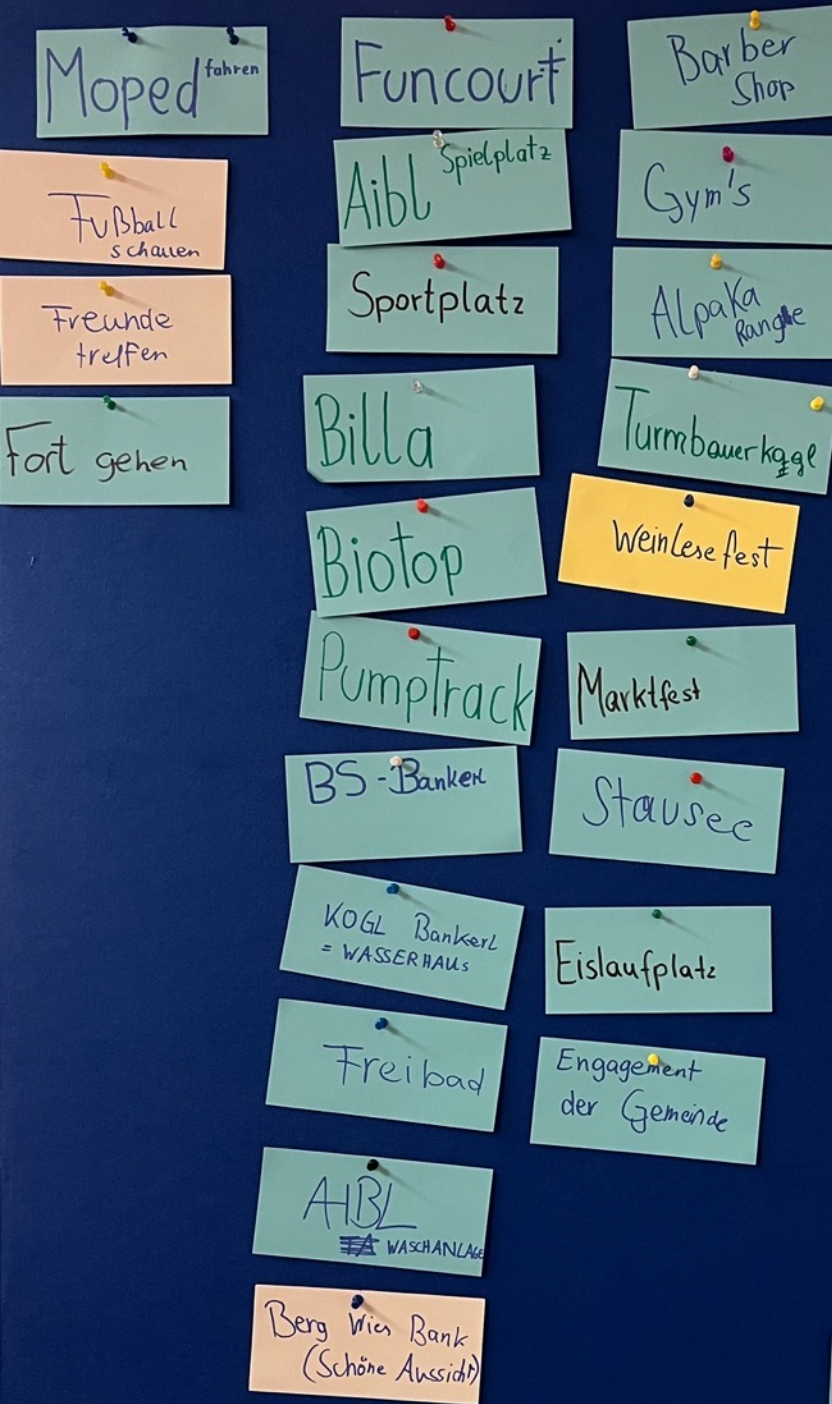 Moped fahren
Fußball
schauen
Freunde
treffen
Fort gehen
Funcourt
Aibl Spielplatz
Sportplatz
Billa
Biotop
Pumptrack
BS-Bankerl
KOGL Bankerl
= WASSERHAUS
Freibad
AIBL
WASCHANLAGE
Berg Wies Bank
(Schöne Aussicht)
Barber
Shop
Gym's
Alpaka
Turmbauerkogl
Weinlesefest
Marktfest
Stausee
Eislaufplatz
Engagement
der Gemeinde